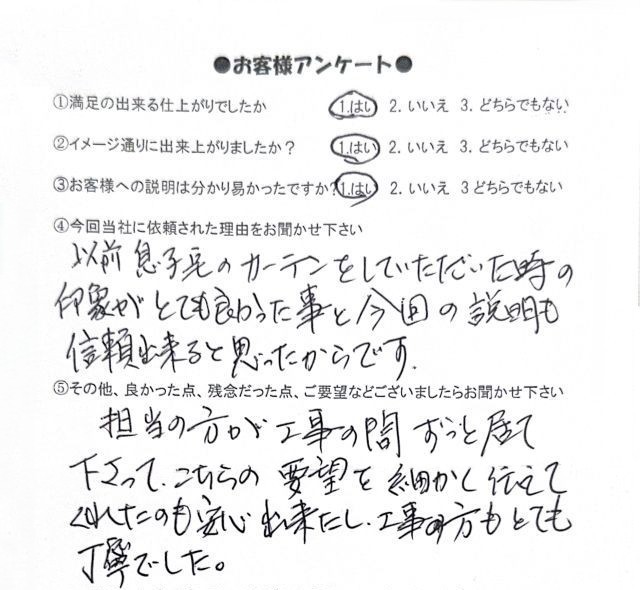 ●お客様アンケート●
①満足の出来る仕上がりでしたか 1.はい 2.いいえ 3.どちらでもない
②イメージ通りに出来上がりましたか？ 1.はい 2.いいえ 3.どちらでもない
③お客様への説明は分かり易かったですか？ 1.はい 2.いいえ 3どちらでもない
④今回当社に依頼された理由をお聞かせ下さい
以前息子宅のカーテンをしていただいた時の
印象がとても良かった事と今回の説明も
信頼出来ると思ったからです.
⑤その他、良かった点、残念だった点、ご要望などございましたらお聞かせ下さい
担当の方が工事の間ずっと居て
下さって、こちらの要望を細かく伝えて
くれたのも安心出来たし、工事の方もとても
丁寧でした。